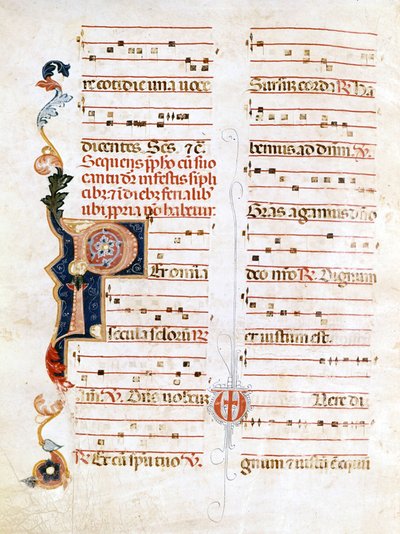 re cotidie una voce
dicentes Scs. ⁊c̄.
Sequens p̄fho cū suo
cantu dr̄ in festis sĩpli
cibꝫ ⁊ ĩ diebꝫ ferialibꝫ
ubi ppria nō habetur
Per omnia
secula sclorum ℟
am̄. ℣. Dn̄s vobiscū
℟ Et cū spiritu tuo ℣.
Sursum corda ℟ Ha
bemus ad dn̄um ℣.
Gr̄as agamus dn̄o
deo nr̄o ℟. Dignum
et iustum est.
Vere di
gnum ⁊ iustū ē equū